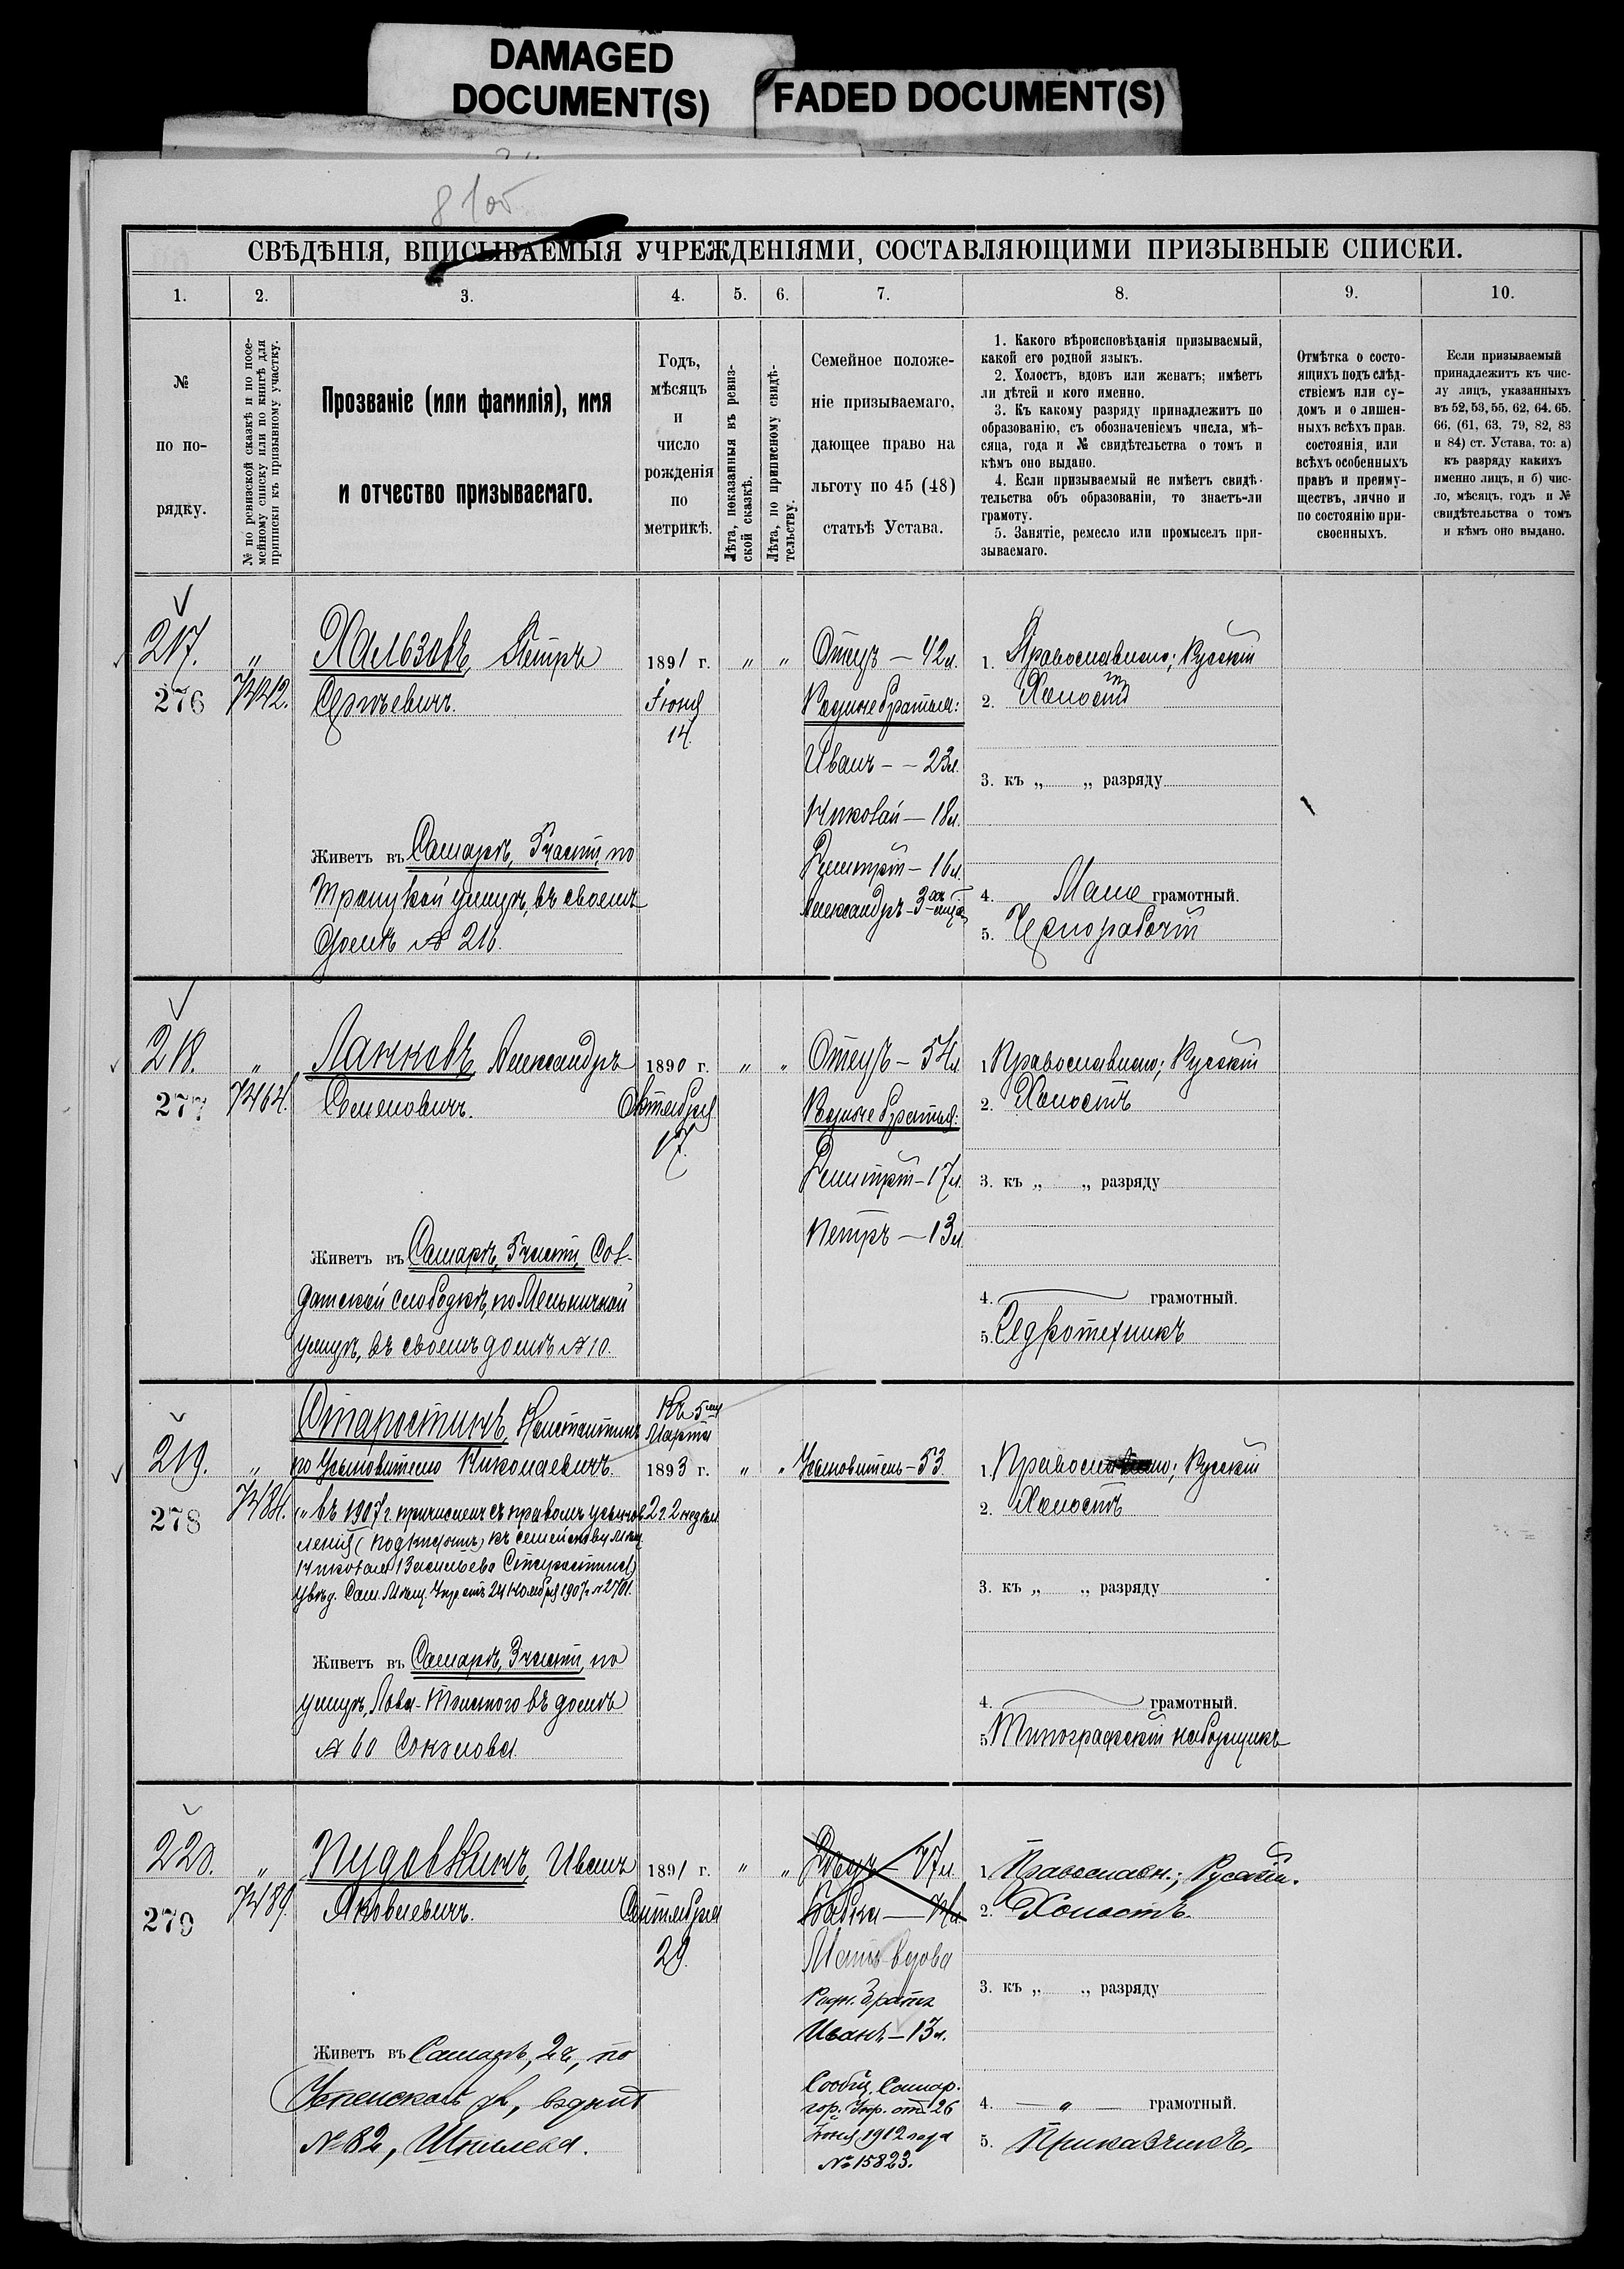 DAMAGED
DOCUMENT(S)
FADED DOCUMENT(S)
СВѢДѢНІЯ, ВПИСЫВАЕМЫЯ УЧРЕЖДЕНІЯМИ, СОСТАВЛЯЮЩИМИ ПРИЗЫВНЫЕ СПИСКИ.
1. 2. 3. 4. 5. 6. 7. 8. 9. 10.
№
по по-
рядку.
№ по ревизской сказкѣ и по посе-
мейному списку или по книгѣ для
приписки къ призывному участку.
Прозваніе (или фамилія), имя
и отчество призываемаго.
Годъ,
мѣсяцъ
и
число
рожденія
по
метрикѣ.
Лѣта, показанныя въ ревиз-
ской сказкѣ.
Лѣта, по приписному свидѣ-
тельству.
Семейное положе-
ніе призываемаго,
дающее право на
льготу по 45 (48)
статьѣ Устава.
1. Какого вѣроисповѣданія призываемый,
какой его родной языкъ.
2. Холостъ, вдовъ или женатъ; имѣетъ
ли дѣтей и кого именно.
3. Къ какому разряду принадлежитъ по
образованію, съ обозначеніемъ числа, мѣ-
сяца, года и № свидѣтельства о томъ и
кѣмъ оно выдано.
4. Если призываемый не имѣетъ свидѣ-
тельства объ образованіи, то знаетъ-ли
грамоту.
5. Занятіе, ремесло или промыселъ при-
зываемаго.
Отмѣтка о состо-
ящихъ подъ слѣд-
ствіемъ или су-
домъ и о лишен-
ныхъ всѣхъ прав.
состоянія, или
всѣхъ особенныхъ
правъ и преиму-
ществъ, лично и
по состоянію при-
своенныхъ.
Если призываемый
принадлежитъ къ чис-
лу лицъ, указанныхъ
въ 52, 53, 55, 62, 64. 65.
66. (61, 63, 79, 82, 83
и 84) ст. Устава, то: а)
къ разряду какихъ
именно лицъ, и б) чис-
ло, мѣсяцъ, годъ и №
свидѣтельства о томъ
и кѣмъ оно выдано.
217. „ Хальзовъ, Петръ 1891 г. „ „ Отецъ — 42 л. 1. Православнаго; Русскій
276 7442. Сергѣевичъ. Іюня Родные братья: 2. Холостъ
14.
Иванъ — 23 л.
3. къ „ „ разряду
Николай — 18 л.
Живетъ въ Самарѣ, 5 части, по Димитрій — 16 л.
Троицкой улицѣ, въ своемъ Александръ — 3хъ мѣсяца 4. Мало грамотный.
домѣ № 216. 5. Чернорабочій
218. „ Ланковъ, Александръ 1890 г. „ „ Отецъ — 54 л. 1. Православнаго; Русскій
277 7464. Семеновичъ. Октября Родные братья: 2. Холостъ
17.
Димитрій — 17 л. 3. къ „ „ разряду
Петръ — 13 л.
Живетъ въ Самарѣ, 5 части, Сол-
датской слободкѣ, по Мельничной 4. грамотный.
улицѣ, въ своемъ домѣ № 10. 5.
Старостинъ, Константинъ Къ 5му Марта
219. „ по Усыновителю Николаевичъ. 1893 г. „ „ Усыновитель — 53 1. Православнаго; Русскій
278 7484. „ въ 1907 г. причисленъ съ правомъ усынов- 2 г. 2 недѣли 2. Холостъ
ленія (подкидышъ) къ семейству мѣщ.
Николая Васильева Старостина
Увѣд. Сам. Мѣщ. Упр. отъ 24 Ноября 1907 г. № 2701. 3. къ „ „ разряду
Живетъ въ Самарѣ, 3 части, по
улицѣ, Льва-Толстого въ домѣ 4. грамотный.
№ 60 Соколова 5. Типографскій наборщикъ
220. „ Пудовкинъ, Иванъ 1891 г. „ „ Дѣдъ — 77 л. 1. Православн.; Русскій.
279 7489. Яковлевичъ. Сентября Бабка 2. Холостъ.
29. Мать вдова
Родн. братъ 3. къ „ „ разряду
Иванъ — 13 л.
Живетъ въ Самарѣ, 2 ч., по
Успенской ул., въ домѣ Сообщ. Самар.
№ 82, гор. Упр. отъ 26 4. — „ — грамотный.
Іюня 1912 года 5. Приказчикъ.
№ 15823.